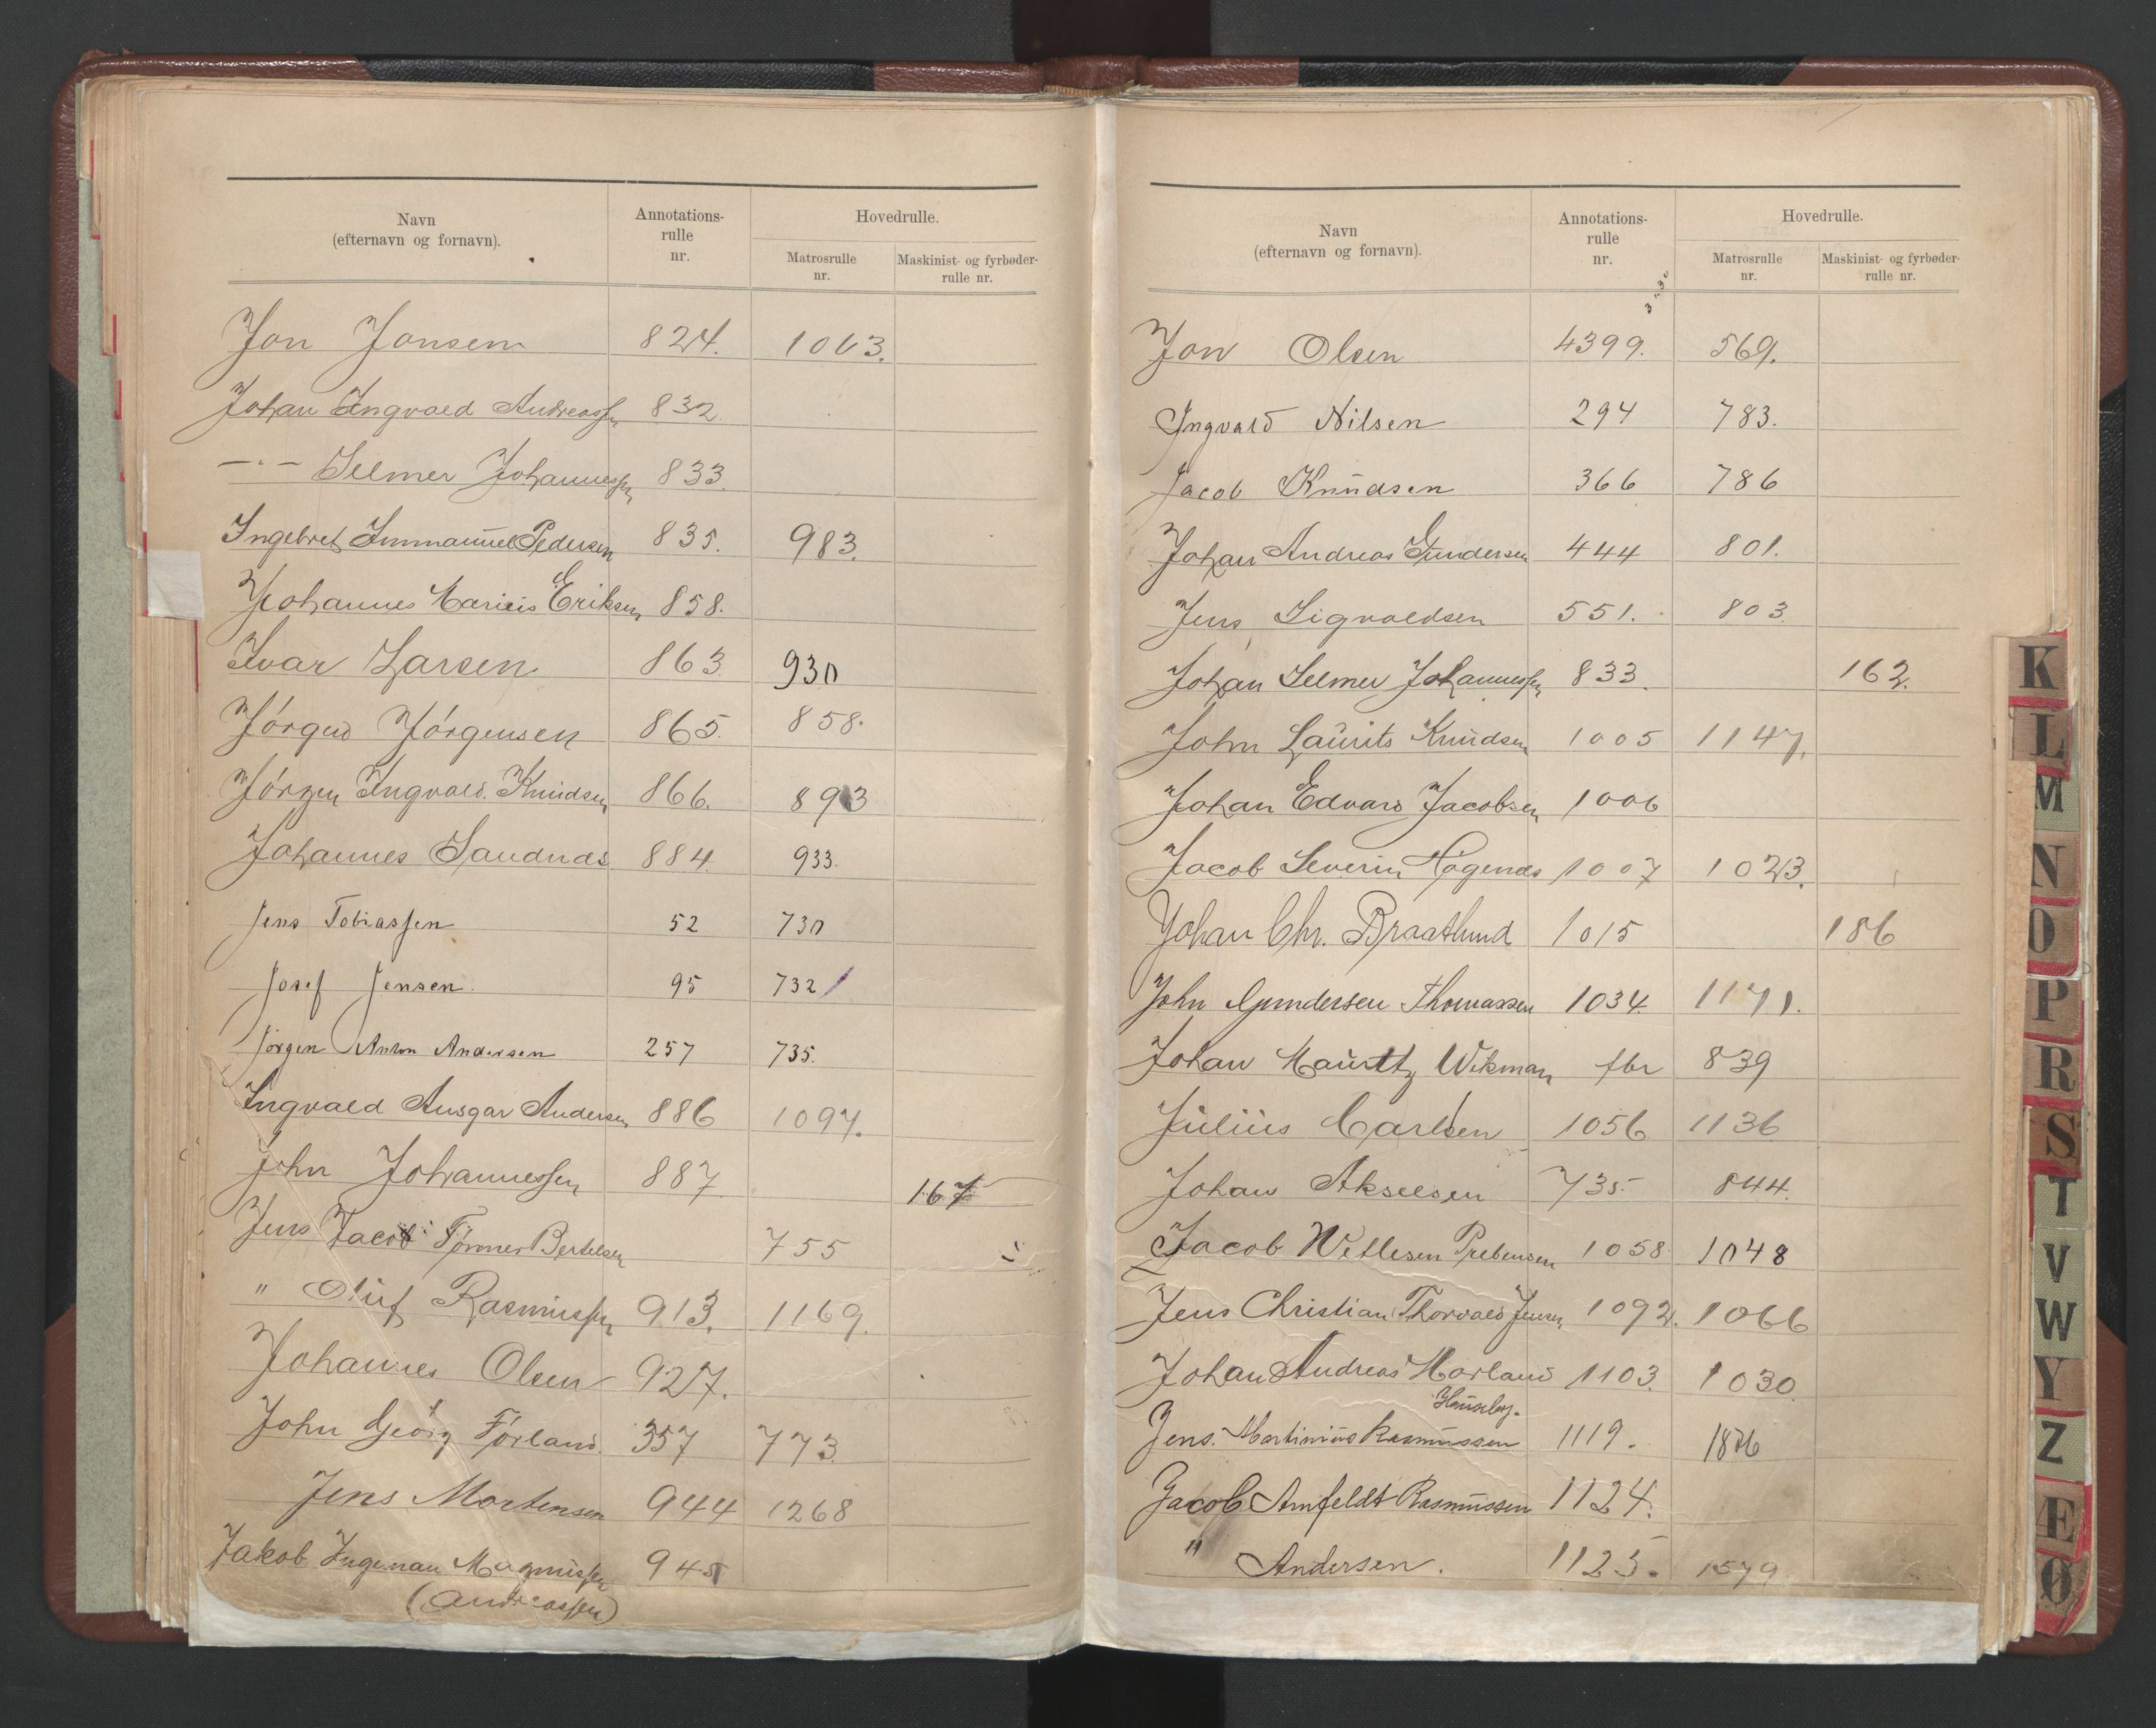 Navn
(efternavn og fornavn).
Annotations-
rulle
nr.
Hovedrulle.
Matrosrulle
nr.
Maskinist- og fyrbøder-
rulle nr.
Jon Jonsen 824. 1003.
Johan Ingvald Andreassen 832.
—"— Selmer Johannessen 833.
Ingebret Immanuel Pedersen 835. 983.
Johannes Marius Eriksen 858.
Ivar Larsen 863. 930
Jørgen Jørgensen 865. 858.
Jørgen Ingvald Knudsen 866. 893
Johannes Sandnes 884. 933.
Jens Tobiassen 52 730
Josef Jensen. 95 732
Jørgen Anton Andersen 257 735.
Ingvald Ansgar Andersen 886 1097.
John Johannessen 887. 167
Jens Jacob Tønnes Bertelsen 755
" Oluf Rasmussen 913. 1169.
Johannes Olsen 927.
John Georg Førland. 357 773.
Jens Mortensen 944 1268
Jakob Ingeman Magnussen 945
(Andreassen)
Navn
(efternavn og fornavn).
Annotations-
rulle
nr.
Hovedrulle.
Matrosrulle
nr.
Maskinist- og fyrbøder-
rulle nr.
Jon Olsen 4399. 569.
Ingvald Nilsen 294 783.
Jacob Knudsen 366 786
Johan Andreas Gundersen 444 801.
Jens Sigvaldsen 551. 803
Johan Selmer Johannessen 833. 162.
John Laurits Knudsen 1005 1147.
Johan Edvard Jacobsen 1006
Jacob Severin Høgenes 1007 1023.
Johan Chr. Braatlund 1015 186
John Gundersen Thomassen 1034. 1171.
Johan Mauritz Wikman fbr 839
Julius Carlsen 1056 1136
Johan Akselsen 735. 844.
Jacob Wetlesen Prebensen 1058 1048
Jens Christian Thorvald Jensen 1092. 1066
Johan Andreas Morland 1103. 1030.
Jens Martinius Rasmussen 1119. 1876
Jacob Amfeldt Rasmussen 1124.
" Andersen. 1125. 1579
K
L
M
N
O
P
R
S
T
V
W
Y
Z
Æ
Ø